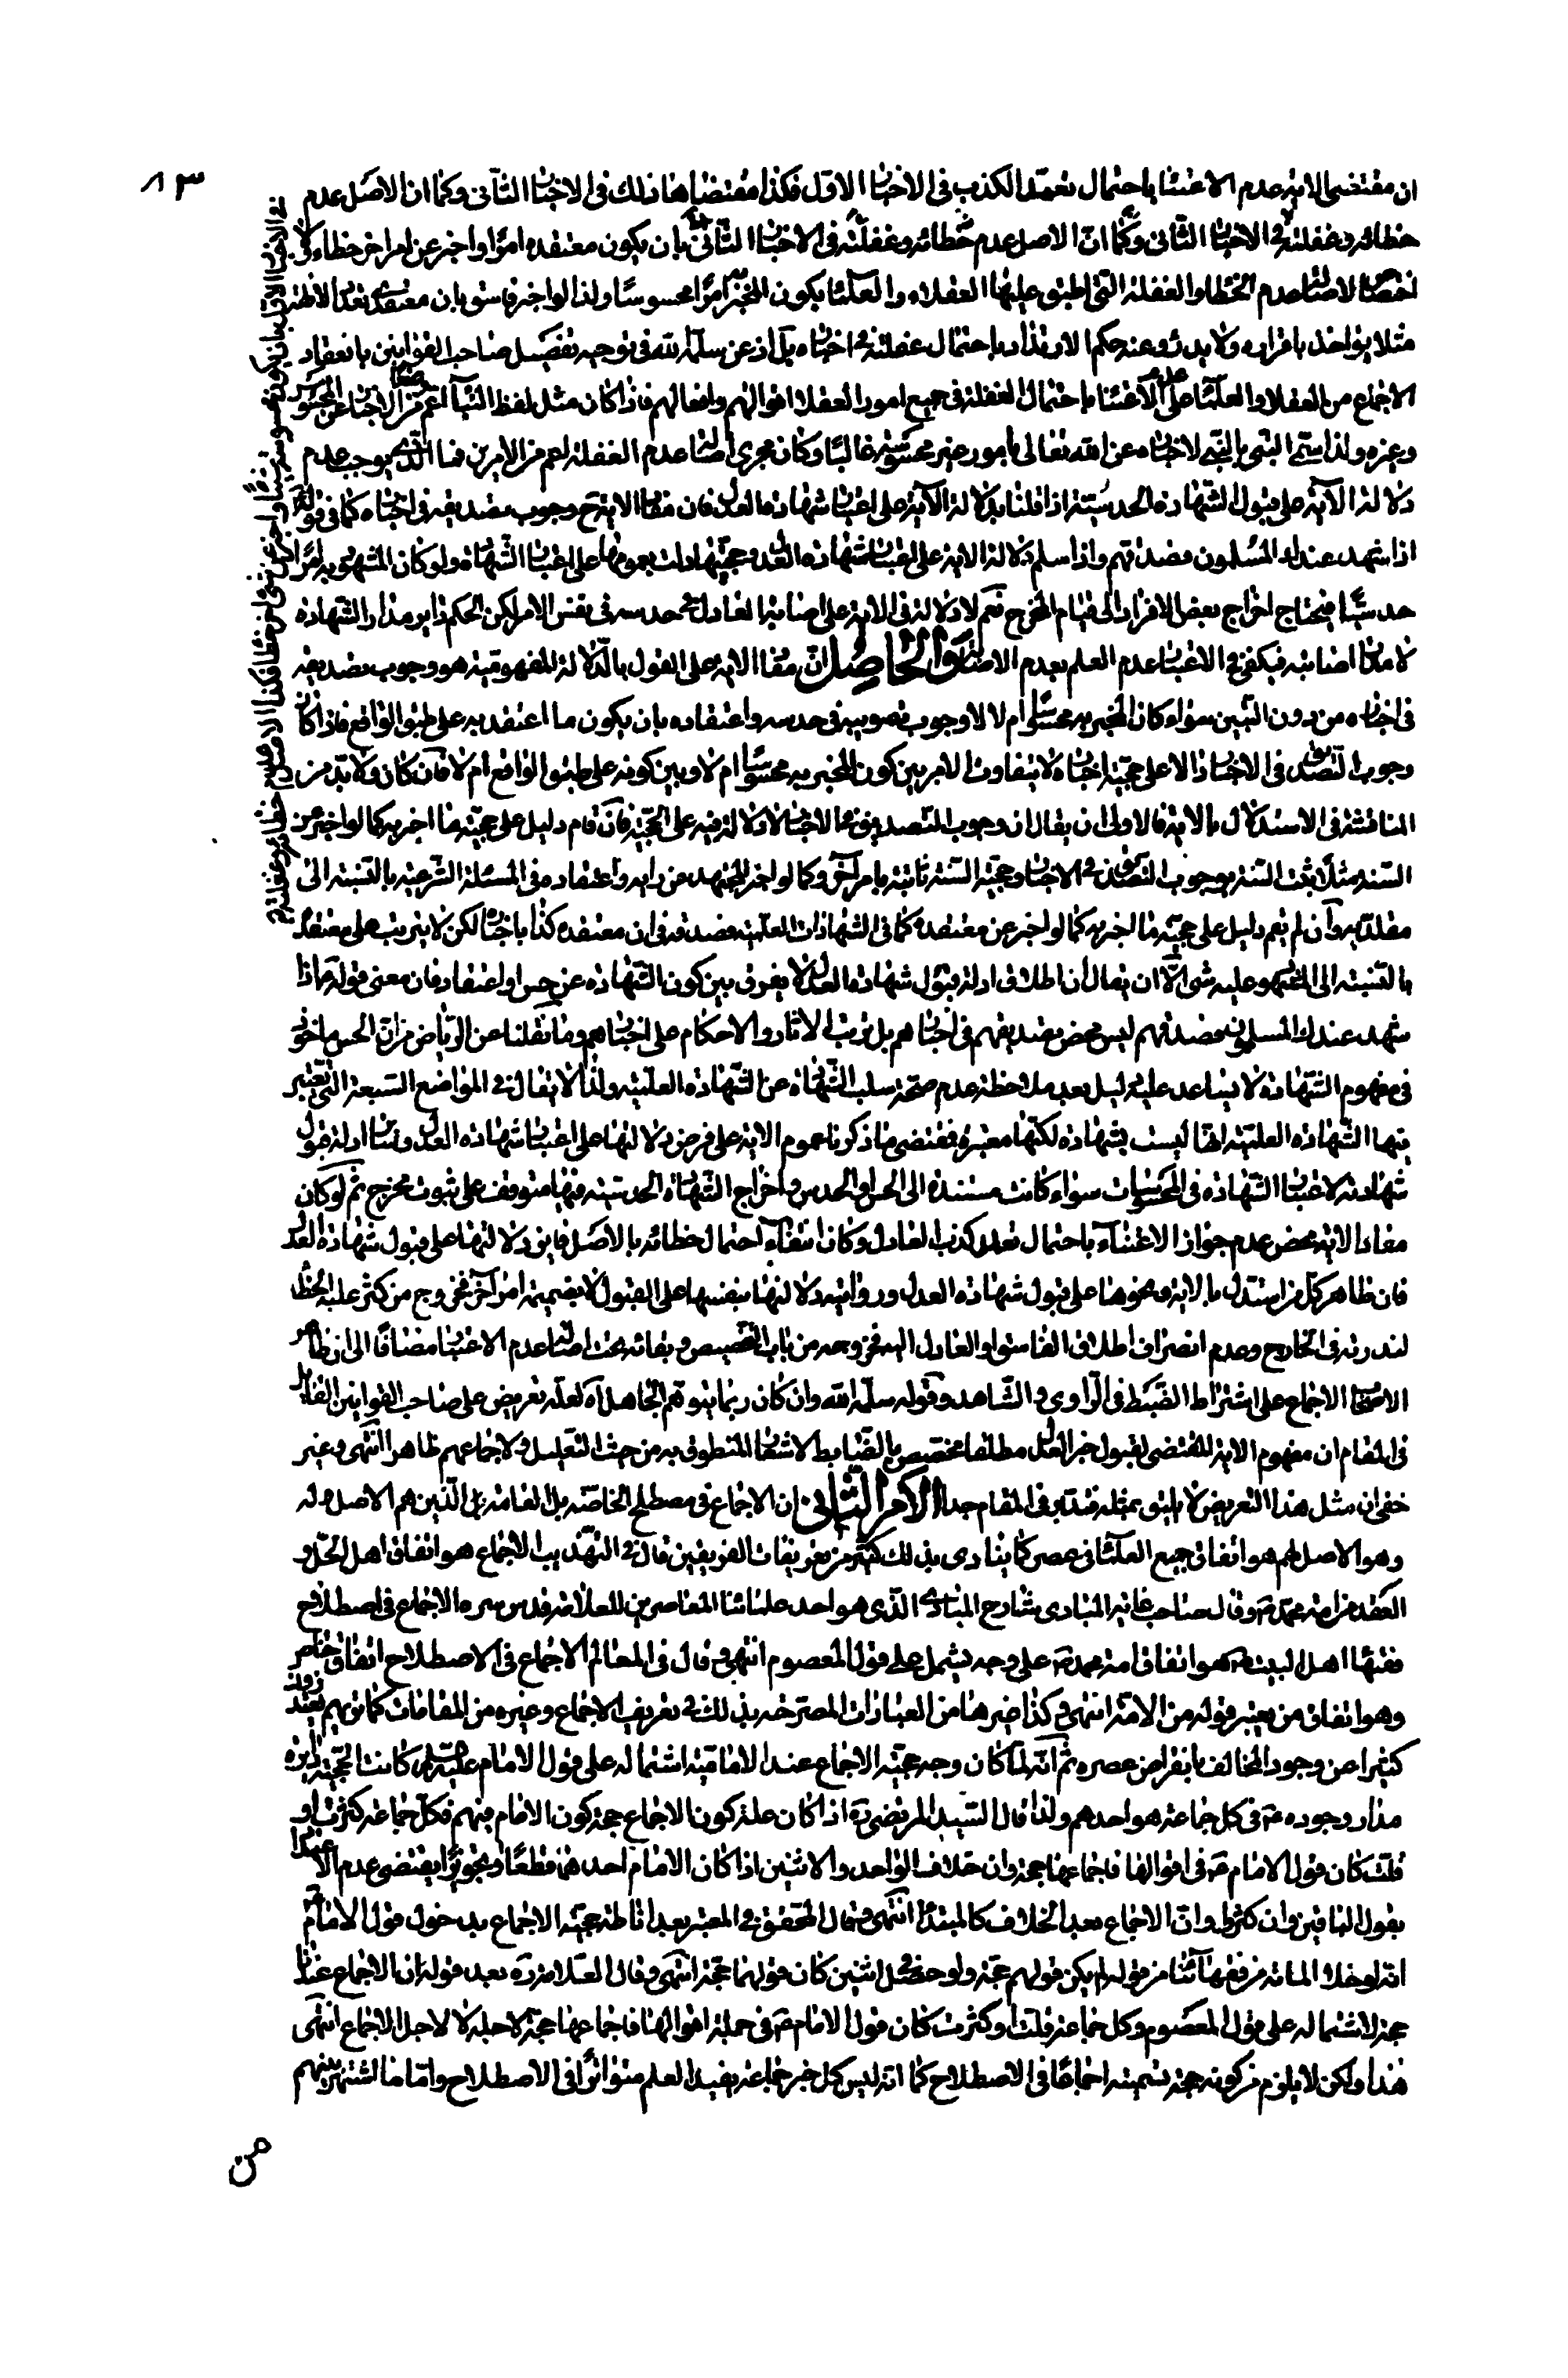 ٨٣
ان مقتضى الاية عدم الاعتناء باحتمال تعمّد الكذب فى الاخبار الاوّل فكذا مقتضاها ذلك فى الاخبار الثّانى وكما ان الاصل عدم
خطائه وغفلته فى الاخبار الثّانى وكما انّ الاصل عدم خطائه وغفلته فى الاخبار الثّانى بان يكون معتقده امرًا واخبر عن امر اخر خطاء
لاصالة عدم الخطاء والغفلة التى اطبق عليها العقلاء والعلماء يكون المخبر به امرًا محسوسًا ولذا لو اخبر فاسق بان معتقده
مثلا يؤاخذ باقراره ولا يدرؤ عنه حكم الارتداد باحتمال غفلته فى اخباره بل اذ عن سلمه الله فى توجيه تفصيل صاحب القوانين بانعقاد
الاجماع من العقلاء والعلماء على عدم الاعتناء باحتمال الغفلة فى جميع امور العقلاء اقوالهم وافعالهم فاذا كان مثل لفظ النّبأ اعمّ من الاخبار عن المحسوس
وغيره ولذا سمّى النبى بالنّبى لاخباره عن الله تعالى بامور غير محسوسة غالبًا وكان مجرى اصالة عدم الغفلة اعم من الامرين فما الّذى يوجب عدم
دلالة الآية على قبول الشّهادة الحدسيّة اذا قلنا بدلالة الآية على اعتبار شهادة العدل فان مفاد الاية ح وجوب تصديقه فى اخباره كما فى قوله
اذا شهد عندك المسلمون فصدّقهم واذا سلم دلالة الاية على اعتبار شهادة العدل وحجيّتها دلت بعمومها على اعتبار الشّهادة ولو كان المشهود به امرًا
حدسيًّا فيحتاج اخراج بعض الافراد الى قيام المخرج نعم لا دلالة فى الاية على اصابة العادل فى حدسه فى نفس الامر لكن الحكم دائر مدار الشّهادة
لا مدار اصابته فيكفى فى الاعتبار عدم العلم بعدم الاصابة والحاصل انّ مفاد الاية على القول بالدّلالة المفهومية هو وجوب تصديقه
فى اخباره من دون التّبين سواء كان المخبر به محسوسًا ام لا لا وجوب تصويبه فى حدسه واعتقاده بان يكون ما اعتقد به على طبق الواقع فاذا كان
وجوب التّصديق فى الاخبار دالا على حجيّة اخباره لا يتفاوت الامر بين كون المخبر به محسوسًا ام لا وبين كونه على طبق الواقع ام لا فان كان ولا بد من
المناقشة فى الاستدلال بالاية فالاولى ان يقال ان وجوب التصديق فى الاخبار لا دلالة فيه على الحجيّة فان قام دليل على حجيّة ما اخبر به كما لو اخبر عن
السّنة مثلًا يثبت السّنة بوجوب التّصديق فى الاخبار وحجيّة السّنة ثابتة بامر آخر وكما لو اخبر المجتهد عن رايه واعتقاده فى المسئلة الشّرعية بالنّسبة الى
مقلّديه وان لم يقم دليل على حجيّة ما اخبر به كما لو اخبر عن معتقده كما فى الشّهادات العلميّة فصدقه فى ان معتقده كذا باخباره لكن لا يترتب على معتقده
بالنّسبة الى المشهود عليه شىء الّا ان يقال ان اطلاق ادلة قبول شهادة العدل لا يفرق بين كون الشّهادة عن حس او اعتقاد فان معنى قوله فاذا
شهد عندك المسلمون فصدقهم ليس محض تصديقهم فى اخبارهم بل ترتّب الاثار والاحكام على اخبارهم وما نقلنا عن الرّياض من انّ الحس ماخوذ
فى مفهوم الشّهادة لا يساعد عليه دليل بعد ملاحظة عدم صحّة سلب الشّهادة عن الشّهادة العلميّة ولذا لا يقال فى المواضع السّبعة التى تعتبر
فيها الشّهادة العلميّة انّها ليست بشهادة لكنّها معتبرة فمقتضى ما ذكرنا عموم الاية على فرض دلالتها على اعتبار شهادة العدل وساير ادلة قبول
شهادته لاعتبار الشّهادة فى المحسوسات سواء كانت مستندة الى الحس او الحدس واخراج الشّهادة الحدسيّة فيها متوقف على ثبوت مخرج ثم لو كان
مفاد الاية محض عدم جواز الاعتناء باحتمال تعمد كذب العادل وكان انتفاء احتمال خطائه بالاصل فاين دلالتها على قبول شهادة العدل
فان ظاهر كل من استدل بالاية ونحوها على قبول شهادة العدل وروايته دلالتها بنفسها على القبول لا بضميمة امر آخر فخروج من كثر عليه الخطاء
لندرته فى الخارج وعدم انصراف اطلاق الفاسق او العادل اليه فخروجه من باب التخصيص وبقائه تحت اصالة عدم الاعتبار مضافًا الى
الاجماع على اشتراط الضّبط فى الرّاوى والشّاهد وقوله سلّمه الله وان كان ربما يتوهّم الجاهل اه لعلّه تعريض على صاحب القوانين القائل
فى المقام ان مفهوم الاية المقتضى لقبول خبر العدل مطلقا مختصّ بالضّابط لاشعار المنطوق به من حيث التّعليل ولاجماعهم ظاهرا انتهى وغير
خفى ان مثل هذا التّعريض لا يليق بمثله فتدبّر فى المقام جدا الامر الثّانى ان الاجماع فى مصطلح الخاصّة بل العامّة بل الّذين هم الاصل له
وهو الاصل لهم هو اتفاق جميع العلماء فى عصر كما ينادى بذلك كثير من تعريفات الفريقين قال فى التّهذيب الاجماع هو اتفاق اهل الحلّ و
العقد من امة محمّد ص وقال صاحب غاية المبادى شارح المبادى الّذى هو احد علمائنا المعاصرين للعلّامة قدس سره الاجماع فى اصطلاح
فقهاء اهل البيت ع هو اتفاق امة محمد ص على وجه يشمل على قول المعصوم انتهى وقال فى المعالم الاجماع فى الاصطلاح اتفاق خاص
وهو اتفاق من يعتبر قوله من الامّة انتهى وكذا غيرها من العبارات المصرّحة بذلك فى تعريف الاجماع وغيره من المقامات كما تريهم يعتذرون
كثيرا عن وجود المخالف بانقراض عصره ثم انّه لمّا كان وجه حجيّة الاجماع عند الاماميّة اشتماله على قول الامام عليه السّلم كانت الحجيّة دائرة
مدار وجوده ع فى كل جماعة هو احدهم ولذا قال السّيد المرتضى ره اذا كان علة كون الاجماع حجة كون الامام فيهم فكلّ جماعة كثرت او
قلت كان قول الامام ع فى اقوالها فاجماعها حجة وان خلاف الواحد والاثنين اذا كان الامام احدهما قطعًا او تجويزًا يقتضى عدم الاعتداد
بقول الباقين وان كثروا وانّ الاجماع بعد الخلاف كالمبتدأ انتهى وقال المحقق فى المعتبر بعد اناطة حجيّة الاجماع بدخول قول الامام ع
انه لو خلا المائة من فقهائنا من قوله لم يكن قولهم حجة ولو حصل فى اثنين كان قولهما حجّة انتهى وقال العلّامة ره بعد قوله ان الاجماع عندنا
حجة لاشتماله على قول المعصوم وكل جماعة قلت او كثرت كان قول الامام ع فى جملة اقوالها فاجماعها حجّة لاجله لا لاجل الاجماع انتهى
هذا ولكن لا يلزم من كونه حجة تسميته اجماعًا فى الاصطلاح كما انه ليس كل خبر جماعة يفيد العلم متواترًا فى الاصطلاح وامّا ما اشتهر بينهم
من